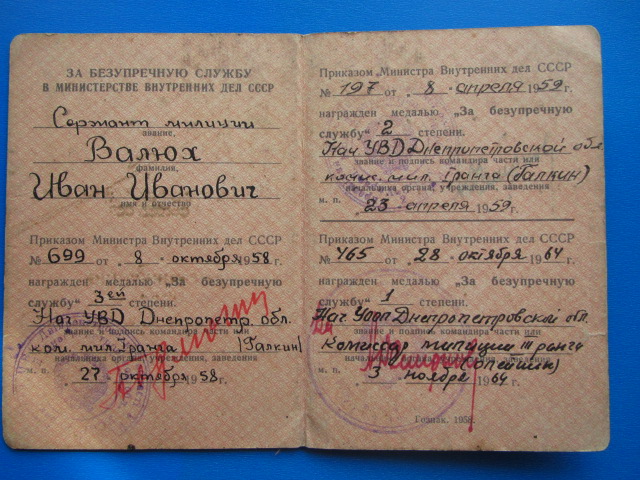 ЗА БЕЗУПРЕЧНУЮ СЛУЖБУ
В МИНИСТЕРСТВЕ ВНУТРЕННИХ ДЕЛ СССР
Сержант милиции
звание,
Валюх
фамилия,
Иван Иванович
имя и отчество
Приказом Министра Внутренних дел СССР
№ 699 от 8 октября 1958 г.
награжден медалью „За безупречную
службу" 3ей степени.
Нач УВД Днепропетр. обл.
звание и подпись командира части или
ком. мил. 3 ранга (Галкин)
начальника органа, учреждения, заведения
м. п. 27 октября 1958 г.
Приказом Министра Внутренних дел СССР
№ 197 от 8 апреля 1959 г.
награжден медалью „За безупречную
службу" 2 степени.
Нач УВД Днепропетровской обл
звание и подпись командира части или
комис. мил. 3 ранга (Галкин)
начальника органа, учреждения, заведения
м. п. 23 апреля 1959 г.
Приказом Министра Внутренних дел СССР
№ 465 от 28 октября 1964 г.
награжден медалью „За безупречную
службу" 1 степени.
Нач УООП Днепропетровской обл.
звание и подпись командира части или
комиссар милиции III ранга
начальника органа, учреждения, заведения
м. п. 3 ноября 1964 г.
Гознак. 1958.